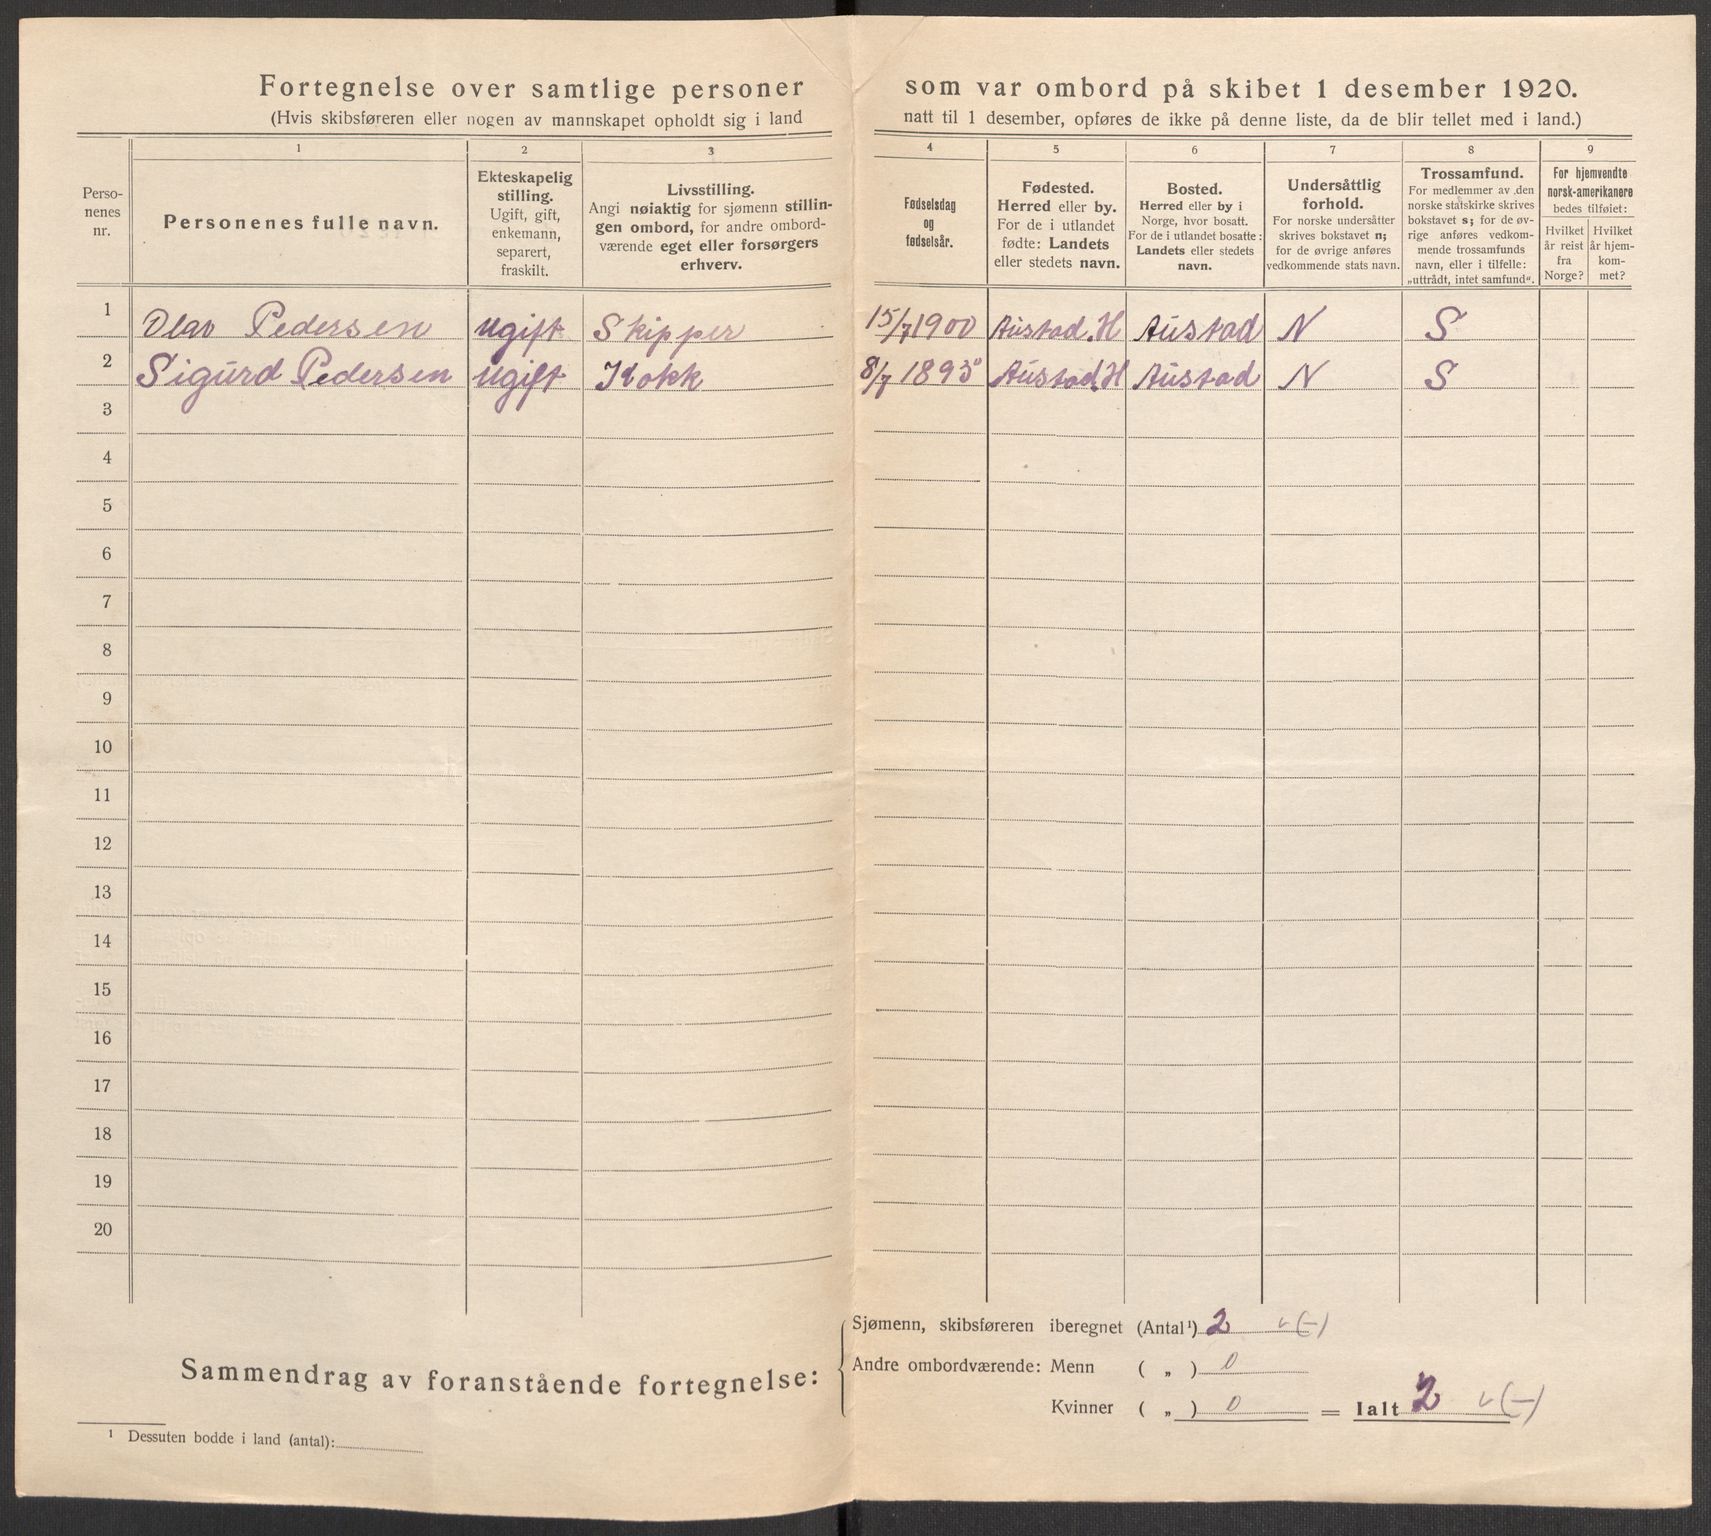 Fortegnelse over samtlige personer som var ombord på skibet 1 desember 1920.
(Hvis skibsføreren eller nogen av mannskapet opholdt sig i land natt til 1 desember, opføres de ikke på denne liste, da de blir tellet med i land.)
Perso-
nenes
nr.
1
Personenes fulle navn.
2
Ekteskapelig
stilling.
Ugift, gift,
enkemann,
separert,
fraskilt.
3
Livsstilling.
Angi nøiaktig for sjømenn stillin-
gen ombord, for andre ombord-
værende eget eller forsørgers
erhverv.
4
Fødselsdag
og
fødselsår.
5
Fødested.
Herred eller by.
For de i utlandet
fødte: Landets
eller stedets navn.
6
Bosted.
Herred eller by i
Norge, hvor bosatt.
For de i utlandet bosatte:
Landets eller stedets
navn.
7
Undersåttlig
forhold.
For norske undersåtter
skrives bokstavet n;
for de øvrige anføres
vedkommende stats navn.
8
Trossamfund.
For medlemmer av den
norske statskirke skrives
bokstavet s; for de øv-
rige anføres vedkom-
mende trossamfunds
navn, eller i tilfelle:
„uttrådt, intet samfund“.
9
For hjemvendte
norsk-amerikanere
bedes tilføiet:
Hvilket
år reist
fra
Norge?
Hvilket
år hjem-
kom-
met?
1 Olav Pedersen ugift Skipper 15/7 1900 Austad.H Austad N S
2 Sigurd Pedersen ugift Kokk 8/7 1895 Austad.H Austad N S
3
4
5
6
7
8
9
10
11
12
13
14
15
16
17
18
19
20
Sammendrag av foranstående fortegnelse:
Sjømenn, skibsføreren iberegnet (Antal¹) 2 (—)
Andre ombordværende: Menn ( „ ) 0
Kvinner ( „ ) 0 = Ialt 2 (—)
¹ Dessuten bodde i land (antal):